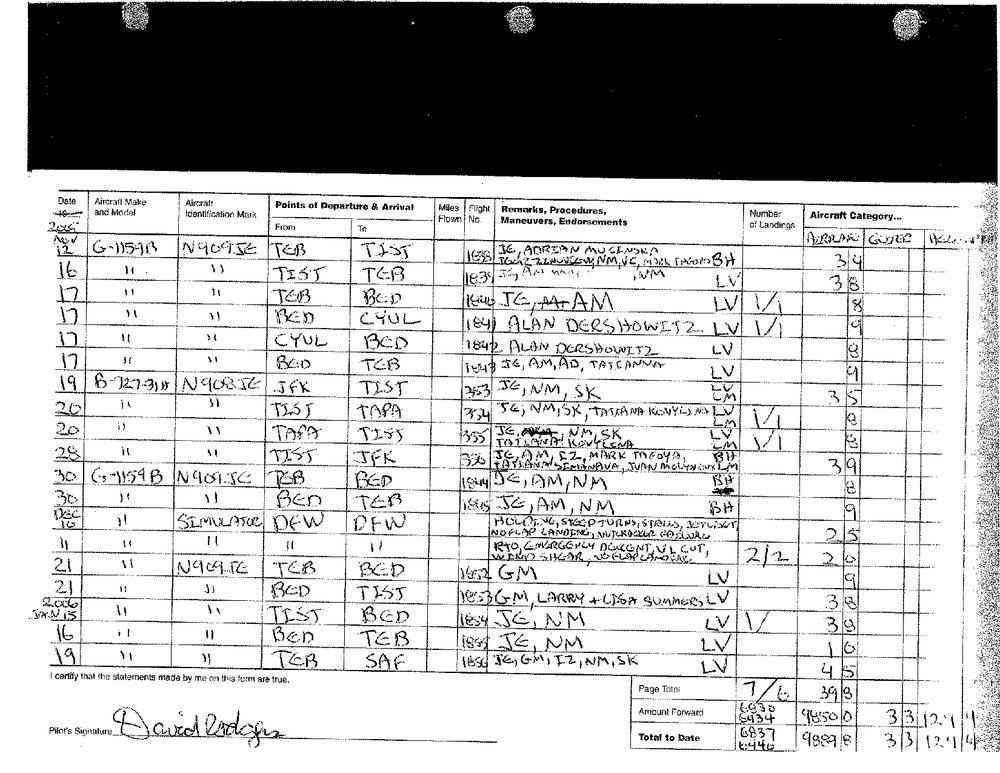 Date Aircraft Make and Model Aircraft Identification Mark Points of Departure & Arrival From To Miles Flown Flight No. Remarks, Procedures, Maneuvers, Endorsements Number of Landings Aircraft Category...
2005 AIRPLANE
NOV 12 G-1159B N909JE TEB TIST JE, ADRIAN NM, BH 3 4
16 " " TIST TEB 1839 JE, AM, NM LV 3 8
17 " " TEB BED 1840 JE, AM LV 1/1 8
17 " " BED CYUL 1841 ALAN DERSHOWITZ LV 1/1 9
17 " " CYUL BED 1842 ALAN DERSHOWITZ LV 8
17 " " BED TEB 1843 JE, AM, AD, TATIANNA LV 9
19 B-727-31H N908JE JFK TIST 353 JE, NM, SK LV LM 3 5
20 " " TIST TAPA 354 JE, NM, SK, TATIANA KOVYLINA LV LM 1/1 8
20 " " TAPA TIST 355 JE, NM, SK TATIANA KOVYLINA LV LM 1/1 8
28 " " TIST JFK 356 JE, AM, IZ, MARK TAFOYA, JUAN BH LM 3 9
30 G-1159B N909JE TEB BED 1844 JE, AM, NM BH 8
30 " " BED TEB 1845 JE, AM, NM BH 9
DEC 10 " SIMULATOR DFW DFW HOLDING, STEEP TURNS, STALLS, NO FLAP LANDING, 2 5
" " " " " RTO, EMERGENCY DESCENT, V1 CUT, WIND SHEAR, NO FLAP LANDING 2/2 2 0
21 " N909JE TEB BED 1852 GM LV 9
21 " " BED TIST 1853 GM, LARRY + LISA SUMMERS LV 3 8
2006 JAN 15 " " TIST BED 1854 JE, NM LV 1/ 3 9
16 " " BED TEB 1855 JE, NM LV 1 0
19 " " TEB SAF 1856 JE, GM, IZ, NM, SK LV 4 5
I certify that the statements made by me on this form are true.
Page Total 7/6 39 8
Amount Forward 6830 6434 9850 0 3 3
Pilot's Signature David Rodgers
Total to Date 6837 6440 9889 8 3 3